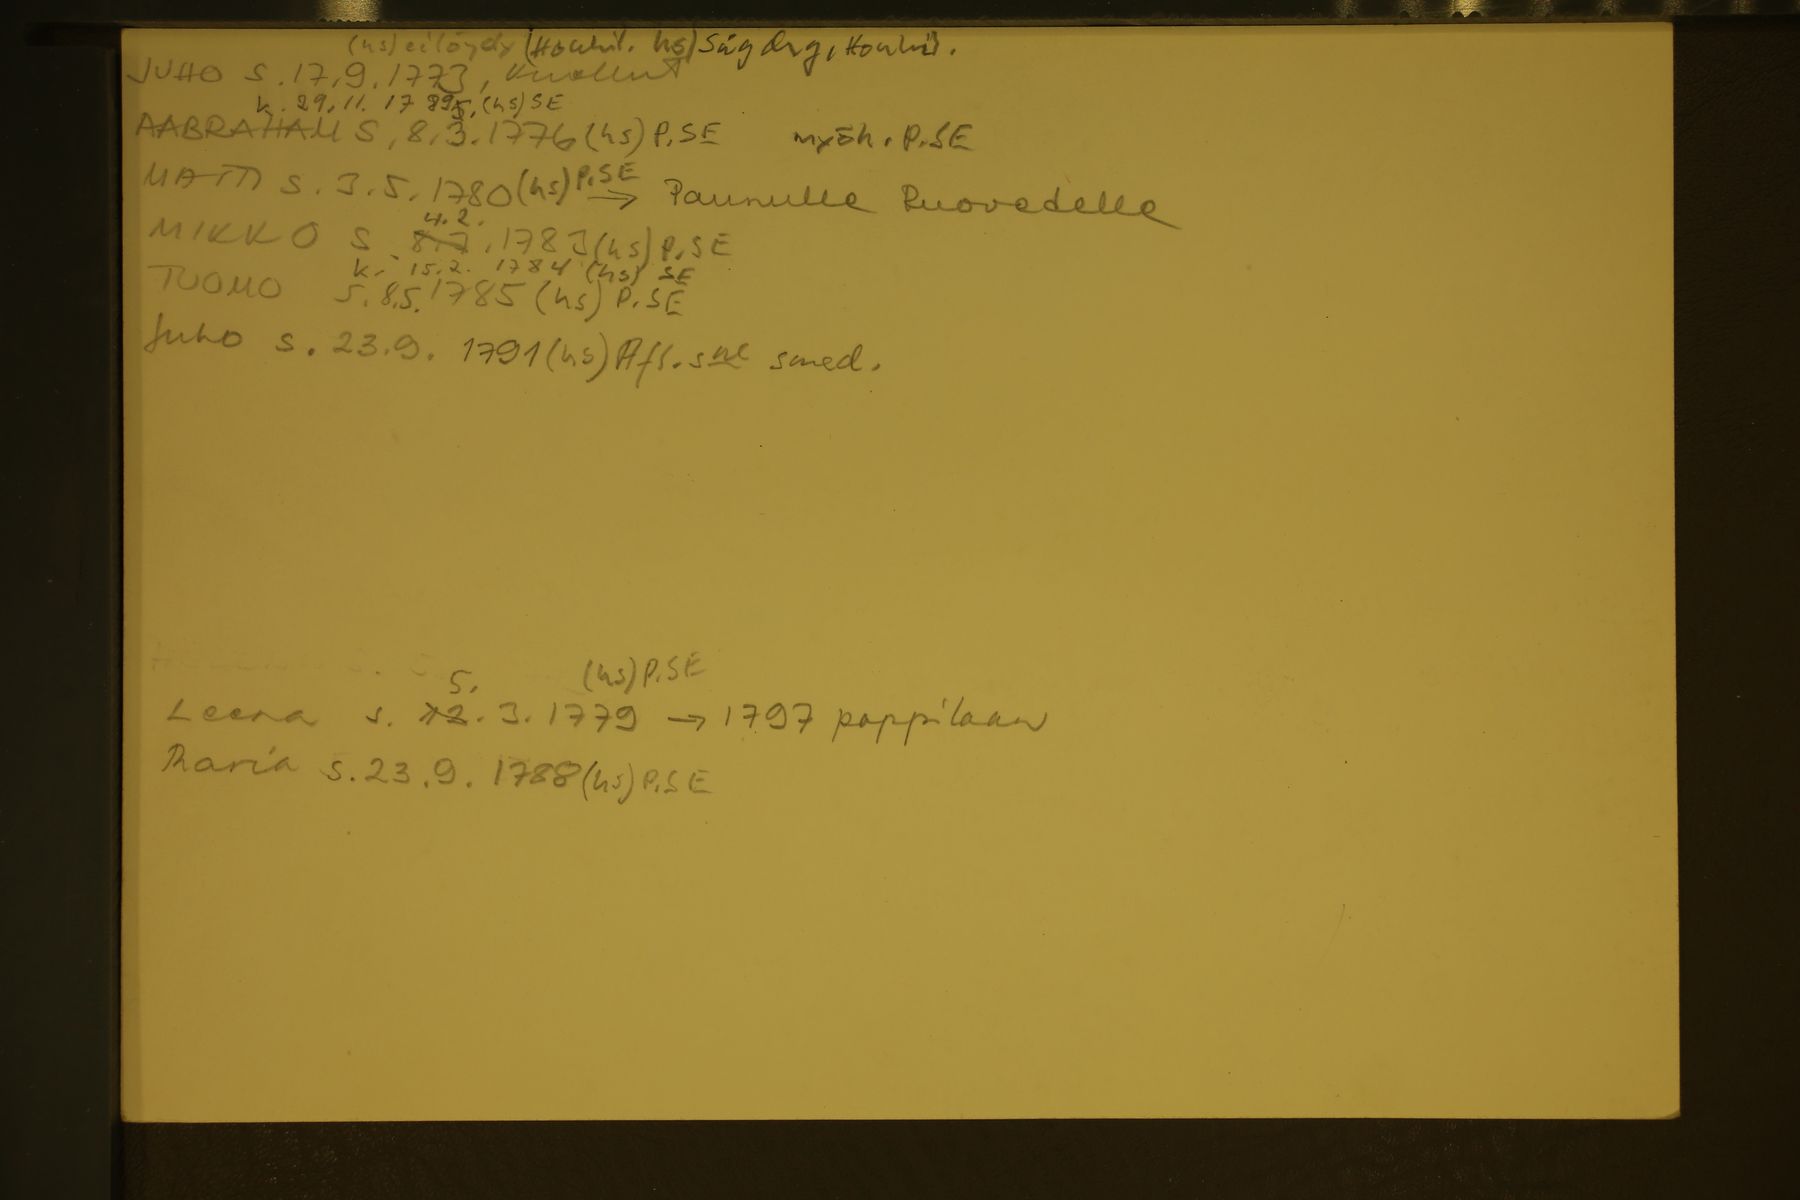 (hs) ei löydy (Houhil. hs) Säg drg, Houhil.
JUHO s. 17.9.1773, kuollut
k. 29.11.1789 5. (hs) SE
AABRAHAM S. 8.3.1776 (hs) P.SE myöh. P.SE
MATTI s. 3.5.1780 (hs) P.SE → Paunulle Ruovedelle
4.2.
MIKKO S 8.7.1783 (hs) P.SE
k. 15.2. 1784 (hs) SE
TUOMO s. 8.5.1785 (hs) P.SE
Juho s. 23.9. 1791 (hs) Afl. sne smed.
5. (hs) P.SE
Leena s. 12.3.1779 → 1797 pappilaan
Maria s. 23.9. 1788 (hs) P.SE